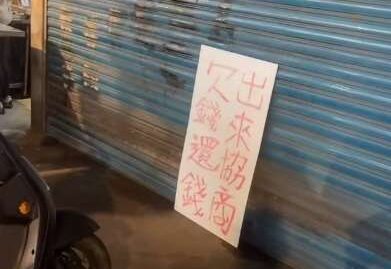 出來協商
欠錢還錢